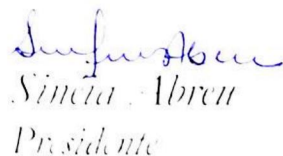 Sincia Abreu
Presidente